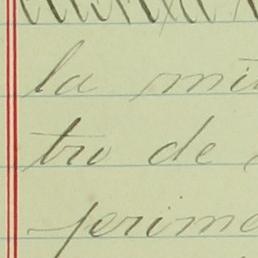 la mit
tro de
perime